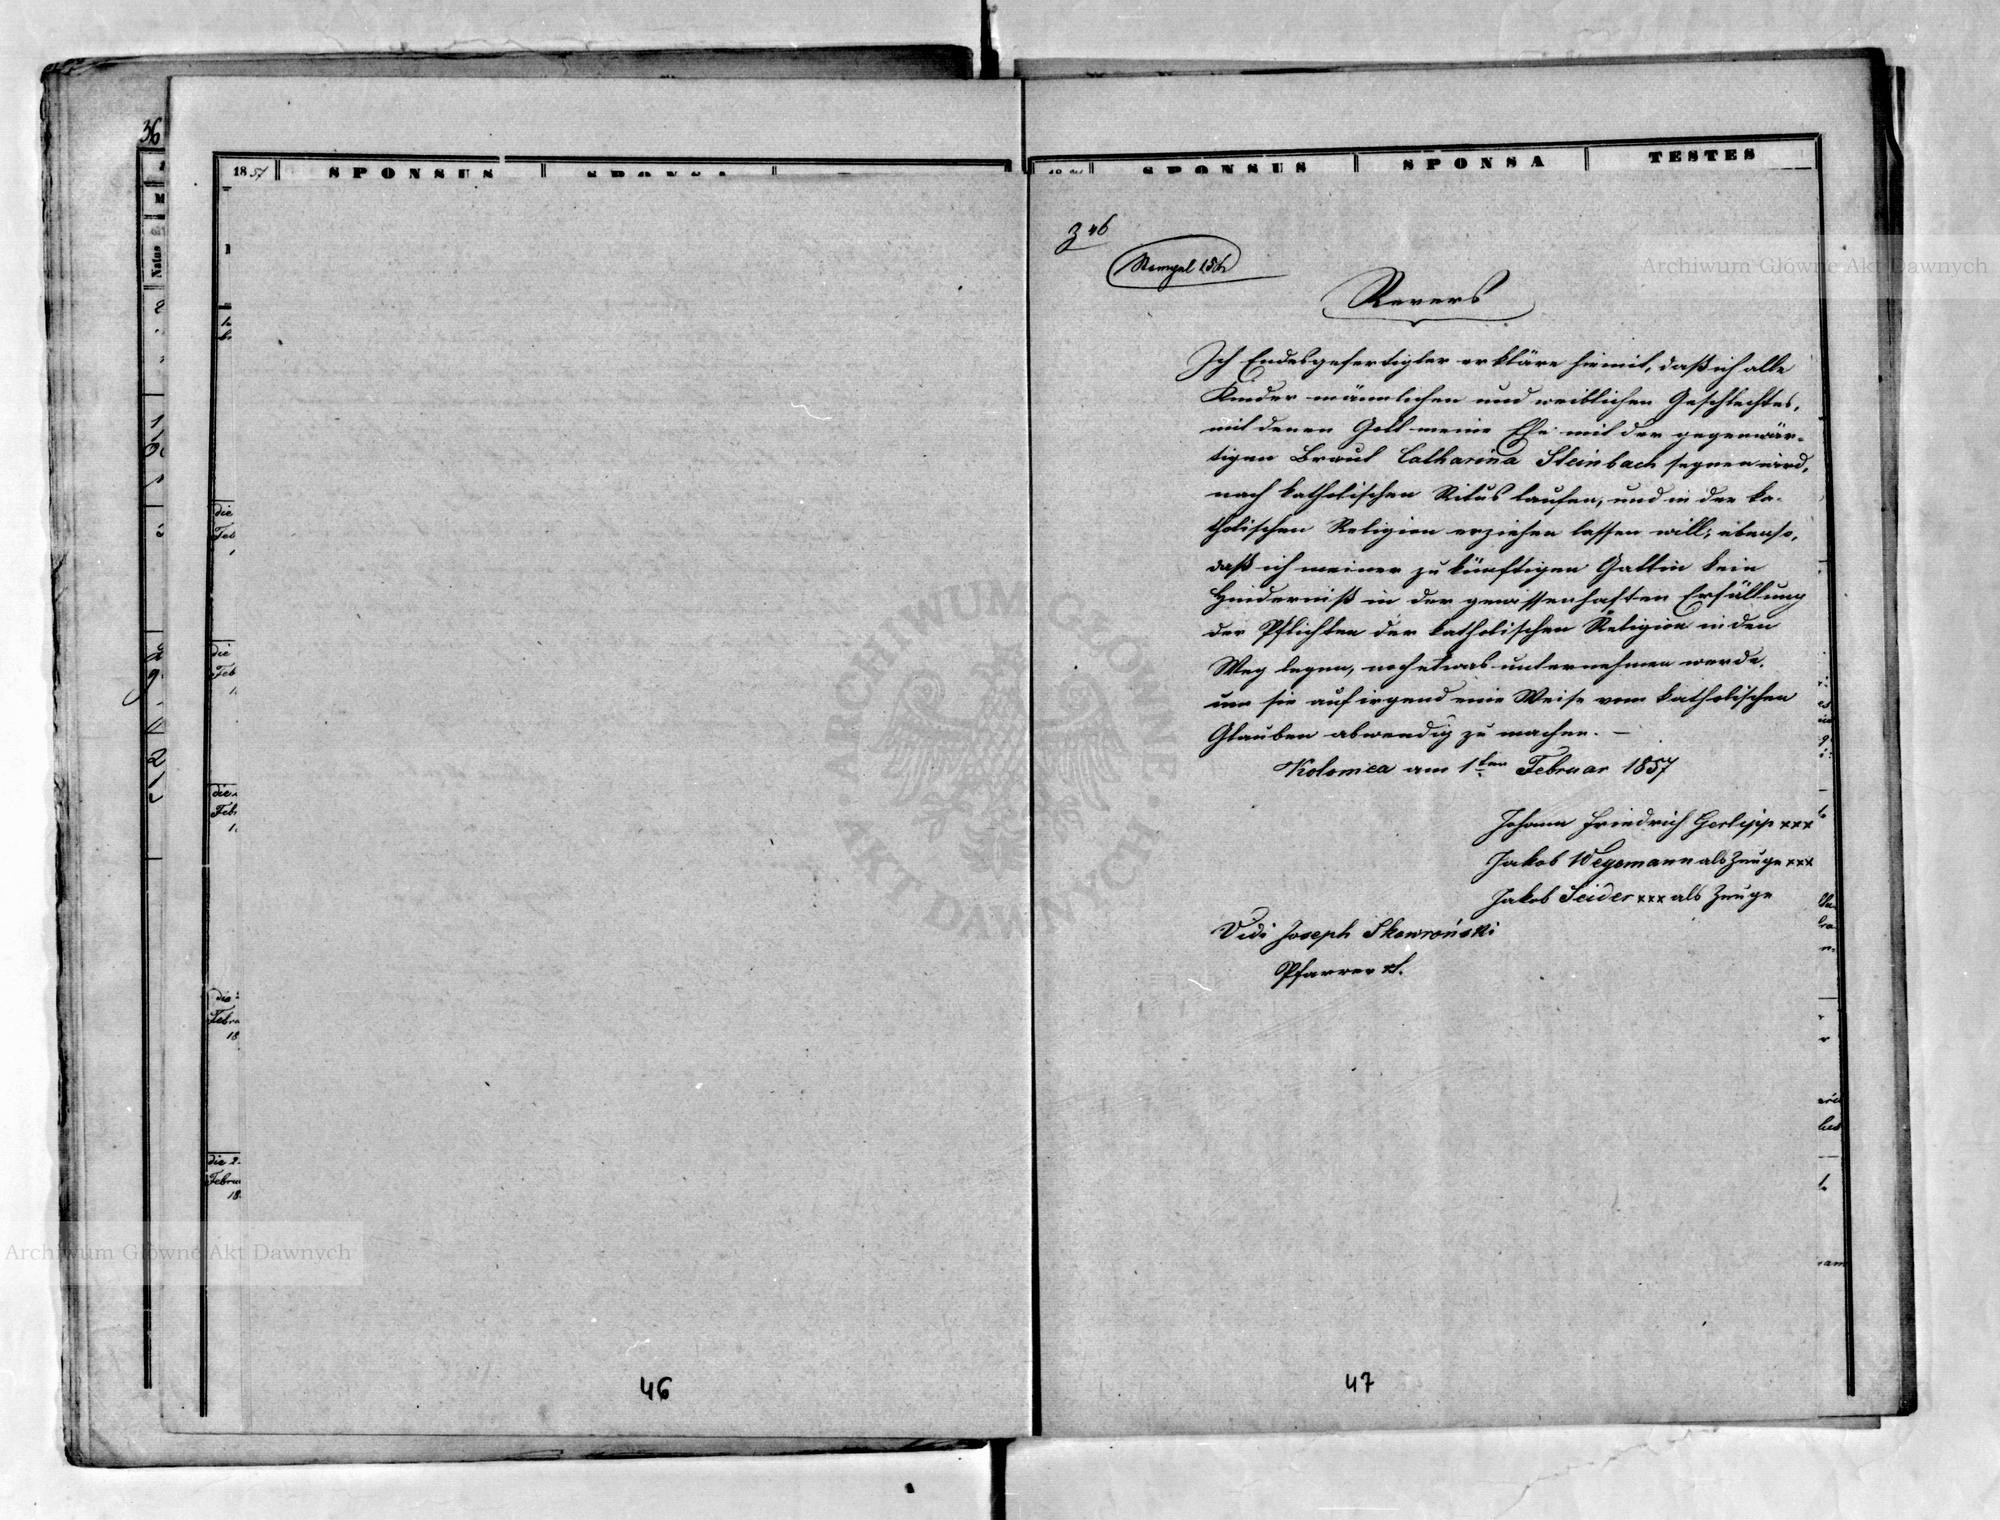 36
1857 SPONSUS
SPONSUS SPONSA TESTES
Natus
die
Feb
die
Feb
die
Feb
die
Febru
18
die 2
Februa
18
Z 46
Stempel 15 x
Revers
Ich Endesgefertigter erkläre hiemit, daß ich alle
Kinder männlichen und weiblichen Geschlechtes,
mit denen Gott meine Ehe mit der gegenwär-
tigen Braut Catharina Steinbach segnen wird,
nach katholischen Ritus taufen, und in der ka-
tholischen Religion erziehen lassen will; ebenso,
daß ich meiner zukünftigen Gattin kein
Hinderniß in der gewissenhaften Erfüllung
der Pflichten der katholischen Religion in den
Weg legen, noch etwas unternehmen werde,
um sie auf irgend eine Weise vom katholischen
Glauben abwendig zu machen. –
Kolomea am 1ten Februar 1857
Johann Friedrich Gerlipp xxx
Jakob Wegemann als Zeuge xxx
Jakob Seider xxx als Zeuge
Vidi Joseph Skowroński
Pfarrer
46
47
Archiwum Główne Akt Dawnych
Archiwum Główne Akt Dawnych
ARCHIWUM GŁÓWNE
AKT DAWNYCH